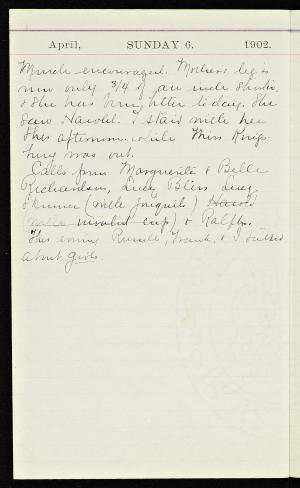 April, SUNDAY 6. 1902.
Much encouraged. Mother's leg is
now only 3/4 of an inch shorter
& she has been better today. She
saw Harold. I staid with her
this afternoon while Miss Kings-
bury was out.
Calls from Marguerite & Belle
Richardson, Lucy Bliss, Lucy
Skinner (with jonquils) Harold
invalid cup) & Ralph.
This evening Russell, Frank, & I talked
about girls.